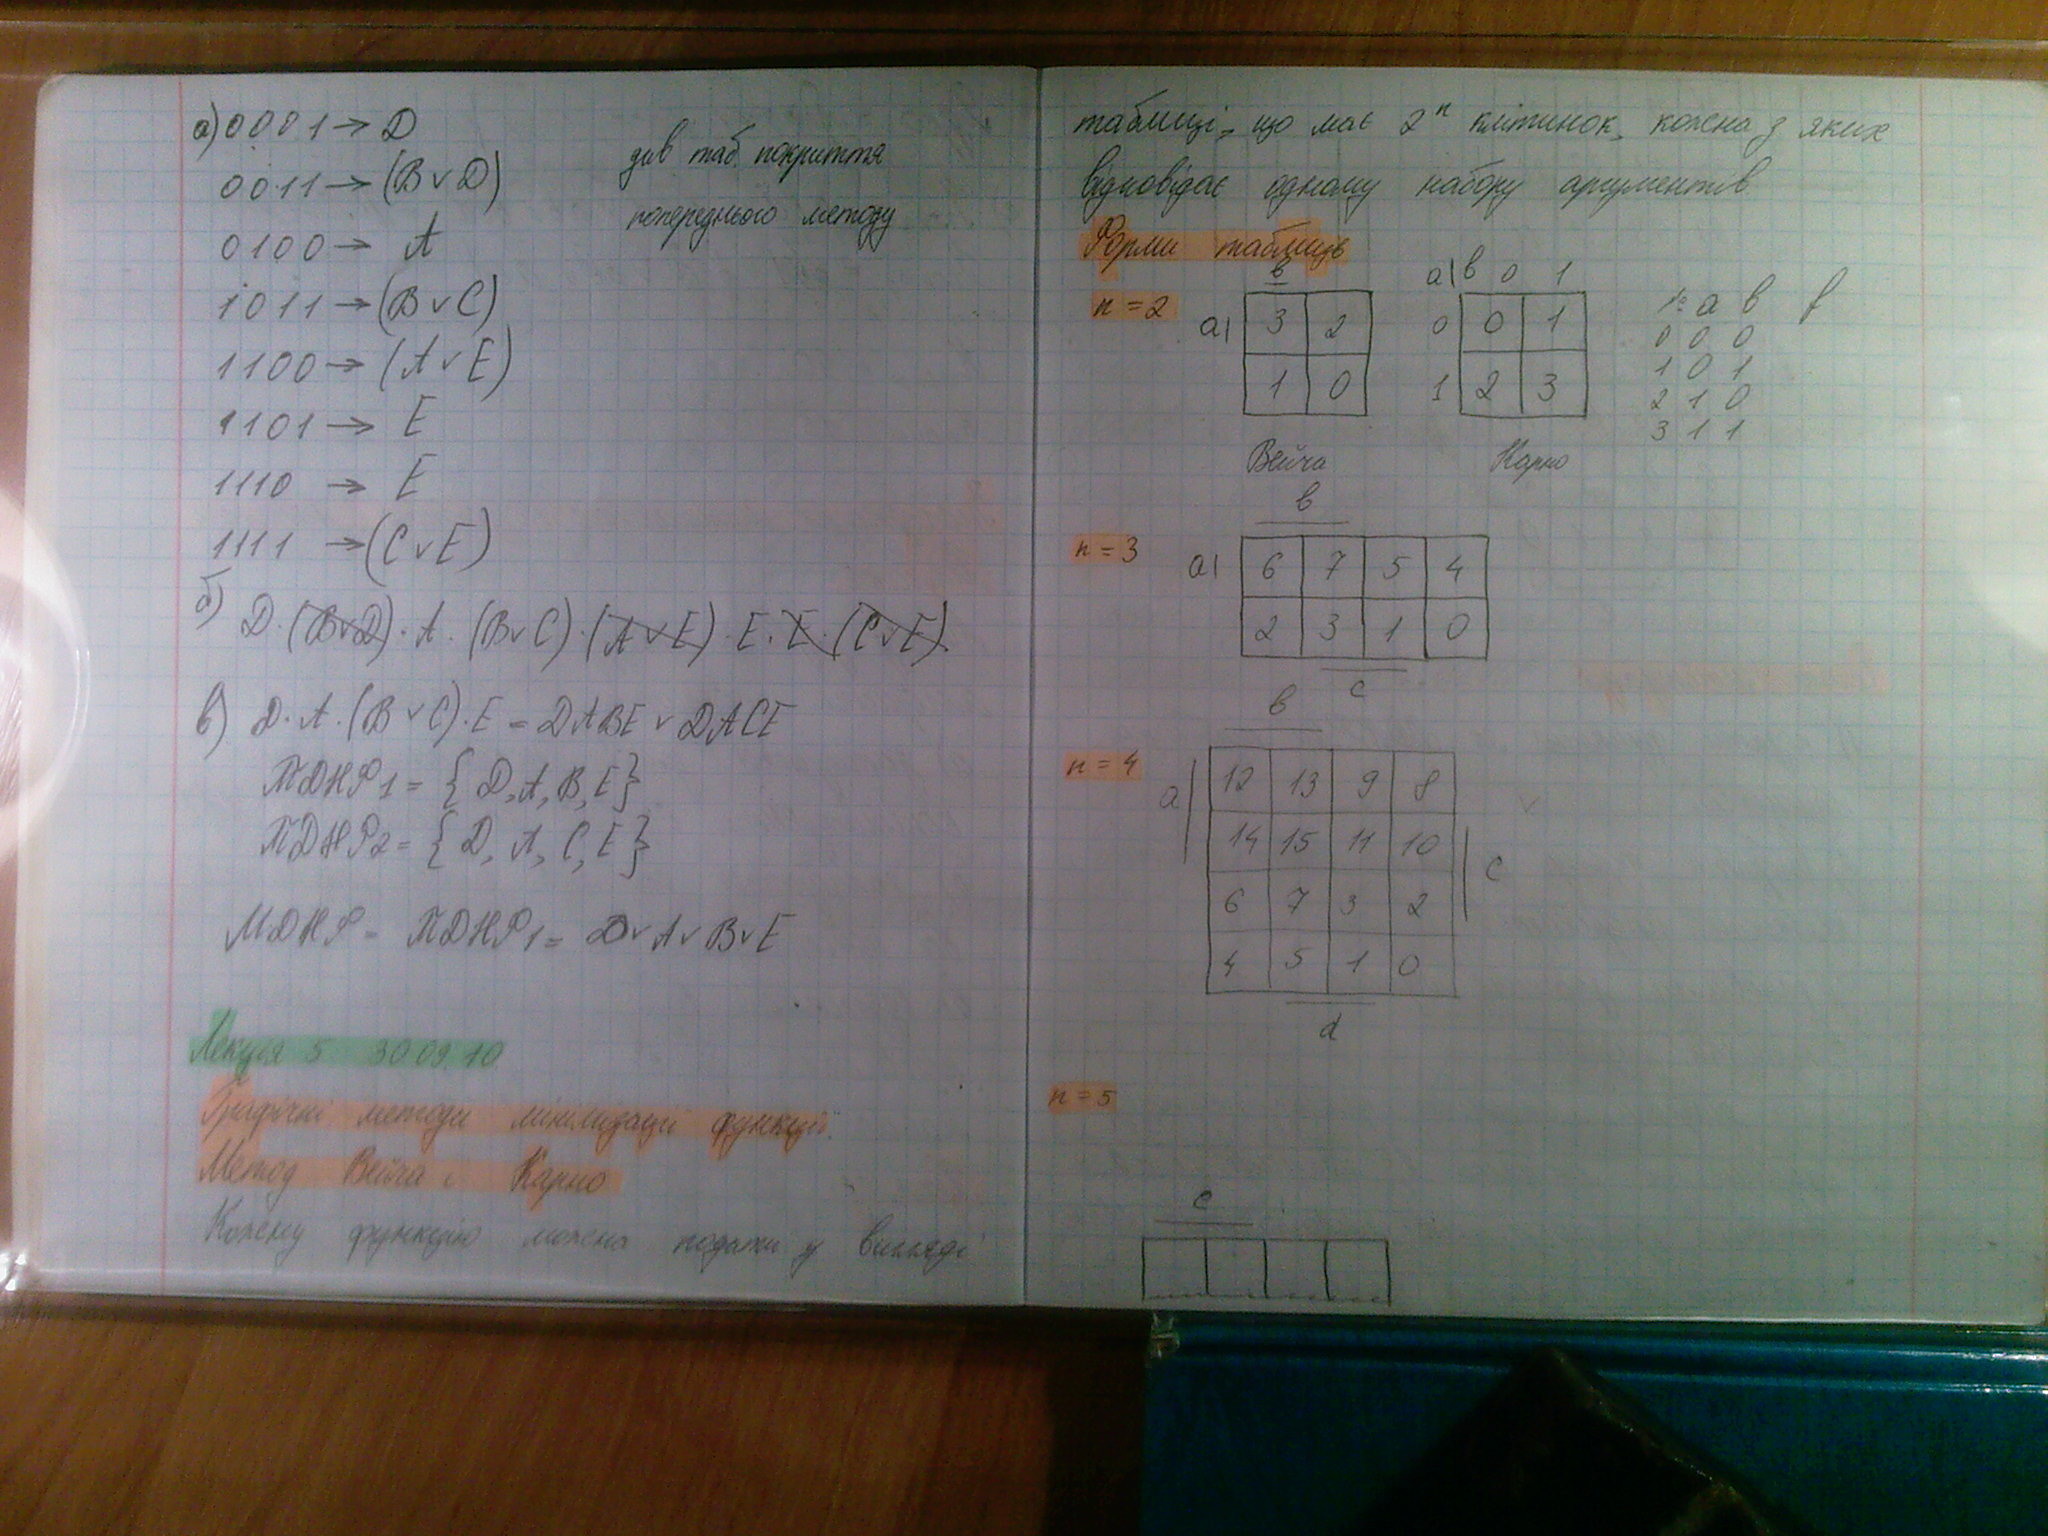 а) 0001 → D
0011 → (B∨D)
0100 → A
1011 → (B∨C)
1100 → (A∨E)
1101 → E
1110 → E
1111 → (C∨E)
див таб. покриття
попереднього методу
б) D·(B∨D)·A·(B∨C)·(A∨E)·E·E·(C∨E)
в) D·A·(B∨C)·E = DABE ∨ DACE
ТДНФ1 = {D, A, B, E}
ТДНФ2 = {D, A, C, E}
МДНФ = ТДНФ1 = D∨A∨B∨E
Лекція 5 30.09.10
Графічні методи мінімізації функцій.
Метод Вейча і Карно
Кожну функцію можна подати у вигляді
таблиці, що має 2ⁿ клітинок, кожна з яких
відповідає одному набору аргументів
Форми таблиць
n = 2
в
а| 3 2
1 0
Вейча
а|в 0 1
0 0 1
1 2 3
Карно
№ а в f
0 0 0
1 0 1
2 1 0
3 1 1
n = 3
в
а| 6 7 5 4
2 3 1 0
с
n = 4
в
а| 12 13 9 8
14 15 11 10 | с
6 7 3 2
4 5 1 0
d
n = 5
с